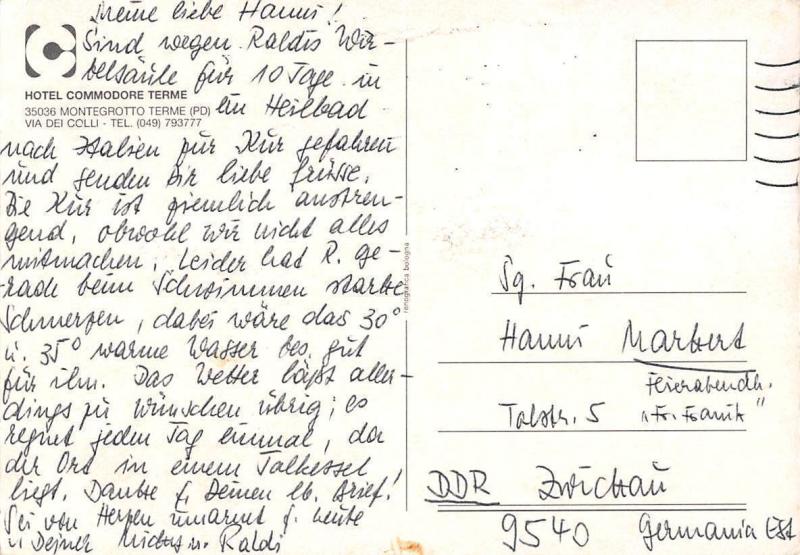 Meine liebe Hanni!
Sind wegen Raldis Wir-
belsäule für 10 Tage in
HOTEL COMMODORE TERME
35036 MONTEGROTTO TERME (PD)
VIA DEI COLLI - TEL. (049) 793777
ein Heilbad
nach Italien zur Kur gefahren
und senden Dir liebe Grüsse.
Die Kur ist ziemlich anstren-
gend, obwohl wir nicht alles
mitmachen. Leider hat R. ge-
rade beim Schwimmen starke
Schmerzen, dabei wäre das 30°
u. 35° warme Wasser bes. gut
für ihn. Das Wetter läßt aller-
dings zu wünschen übrig; es
regnet jeden Tag einmal, da
der Ort in einem Talkessel
liegt. Danke f. Deinen lb. Brief!
Sei von Herzen umarmt f. heute
v. Deiner u. Raldi
renografica bologna
Sg. Frau
Hanni Markert
Feierabendh.
Talstr. 5 "Fr. Frank"
DDR Zwickau
9540 Germania Est